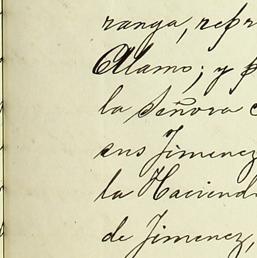 ranga, repr
Alamo; y p
la Señora
sus Jimenez
la Haciend
de Jimenez,